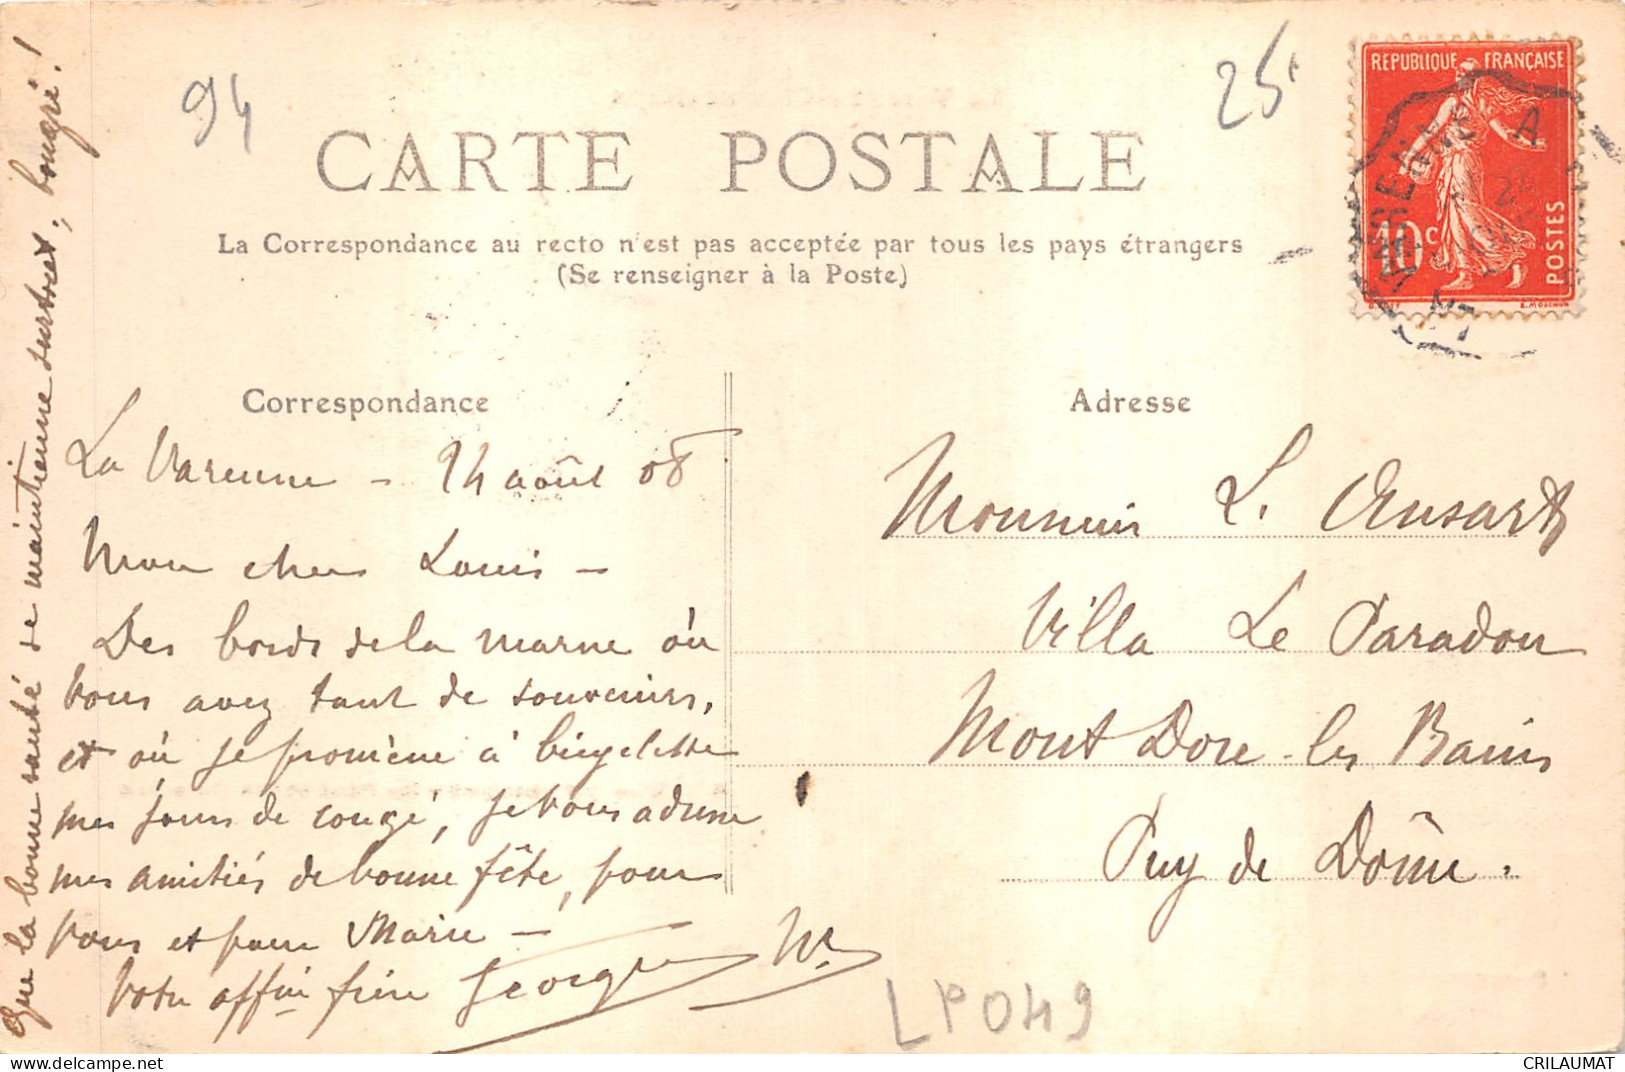 94
25
CARTE POSTALE
La Correspondance au recto n'est pas acceptée par tous les pays étrangers
(Se renseigner à la Poste)
REPUBLIQUE FRANÇAISE
10 c
POSTES
E. MOUCHON
VARENNE A
Correspondance
La Varenne - 24 août 08
Mon cher Louis -
Des bords de la Marne où
vous avez tant de souvenirs,
et où je promène à bicyclette
mes jours de congé, je vous adresse
mes amitiés de bonne fête, pour
vous et pour Marie -
Votre affné frère George W.
Que la bonne santé se maintienne surtout, bougré !
Adresse
Monsieur L. Ansart
Villa Le Paradou
Mont Dore-les Bains
Puy de Dôme.
LP049
CRILAUMAT